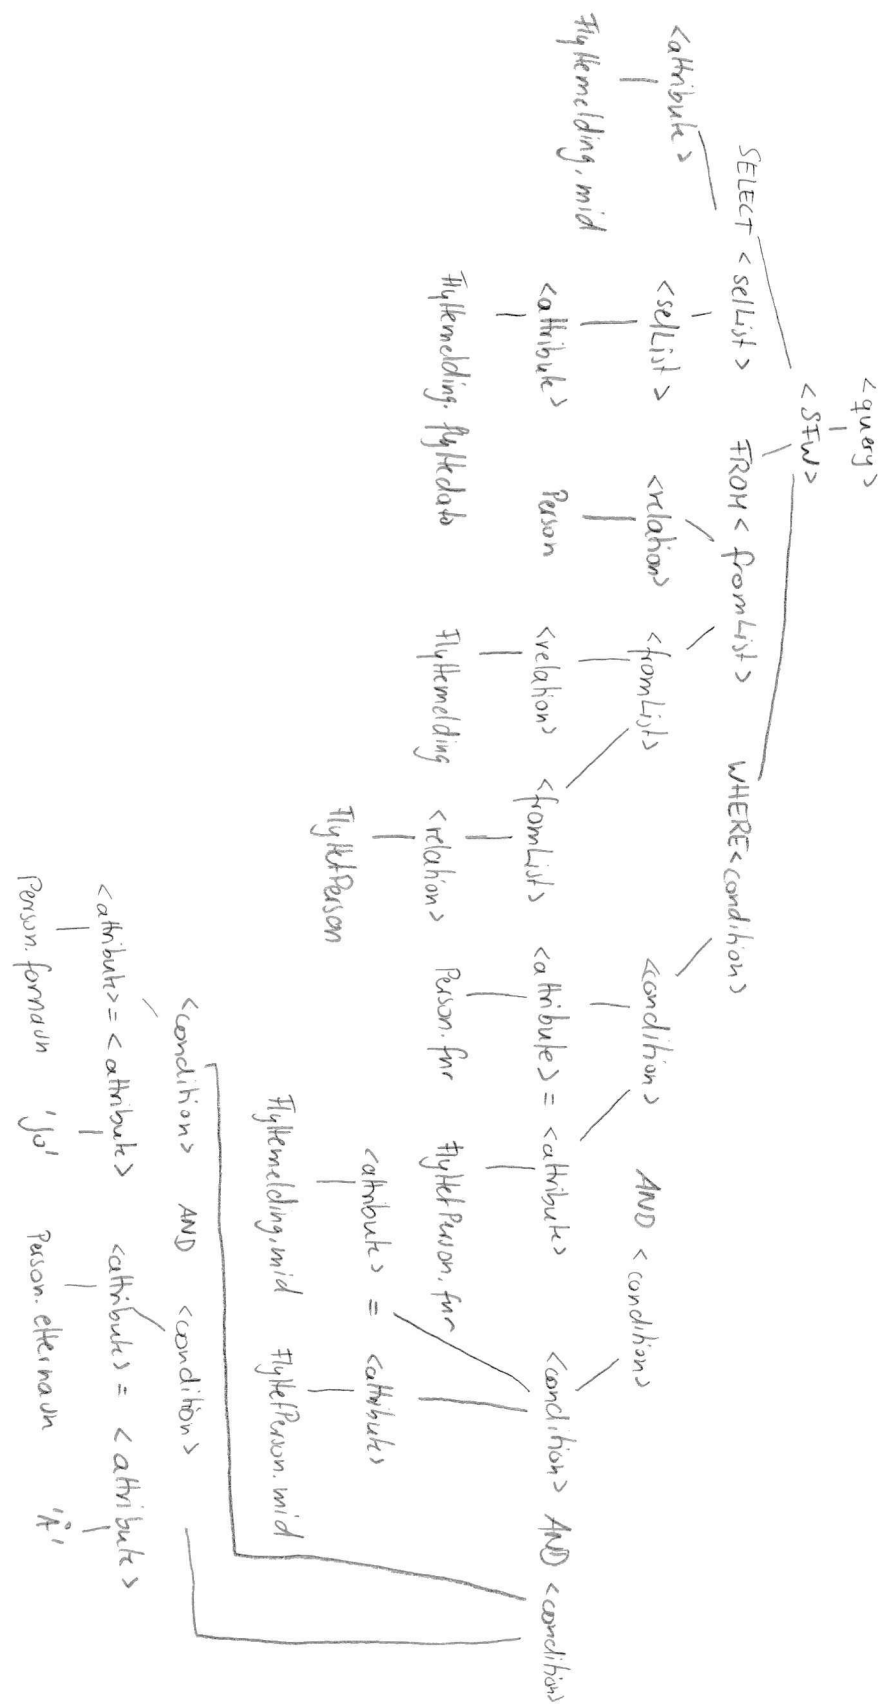 <query>
<SFW>
SELECT <selList> FROM <fromList> WHERE <condition>
<attribute> <selList> <relation> <fromList> <condition> AND <condition>
Flyttemelding.mid <attribute> Person <relation> <fromList> <attribute> = <attribute> <condition> AND <condition>
Flyttemelding.flyttedato Flyttemelding <relation> Person.fnr FlyttetPerson.fnr
FlyttetPerson <attribute> = <attribute>
Flyttemelding.mid FlyttetPerson.mid
<condition> AND <condition>
<attribute> = <attribute> <attribute> = <attribute>
Person.fornavn 'Jo' Person.etternavn 'Å'